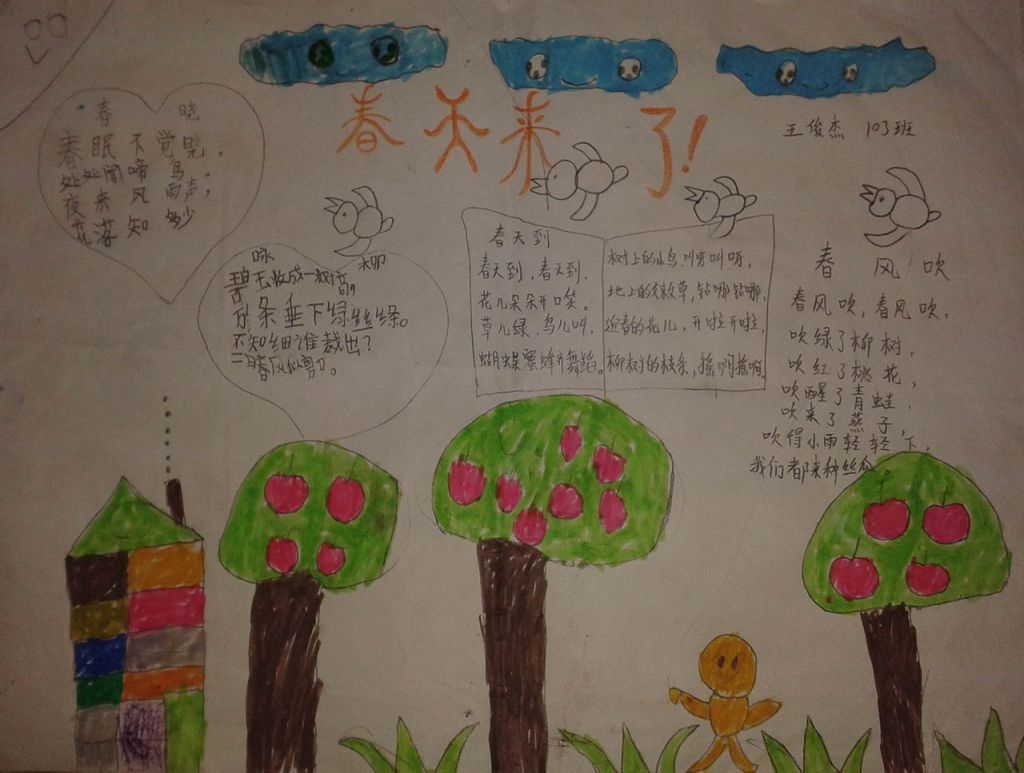 春天来了!
王俊杰 103班
春晓
春眠不觉晓,
处处闻啼鸟
夜来风雨声;
花落知多少
咏柳
碧玉妆成一树高。
万条垂下绿丝绦。
不知细谁裁出?
二月春风似剪刀。
春天到
春天到,春天到,
花儿朵朵开口笑。
草儿绿,鸟儿叫,
蝴蝶蜜蜂齐舞蹈。
树上的小鸟,叫呀叫呀,
地上的草,钻哪钻哪,
迎春的花儿,开啦开啦,
柳树的枝条,摇啊摇啊
春风吹
春风吹,春风吹,
吹绿了柳树,
吹红了桃花,
吹醒了青蛙,
吹来了燕子,
吹得小雨轻轻下,
我们都来种丝瓜。